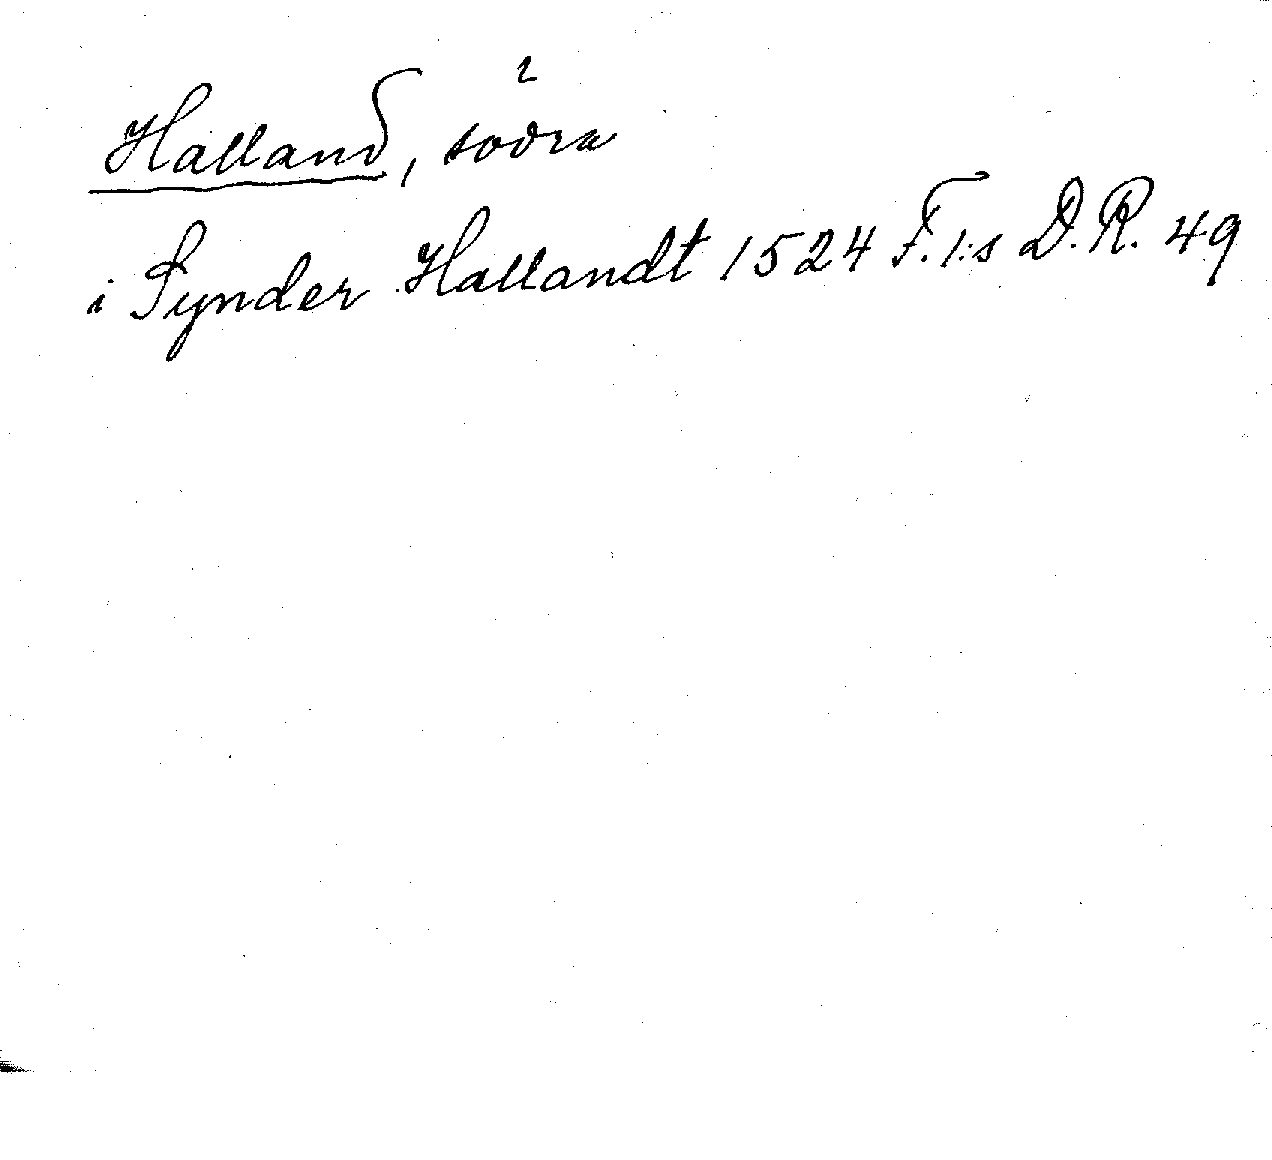 Halland, södra
i Synder Hallandt 1524 F. 1:s D.R. 49